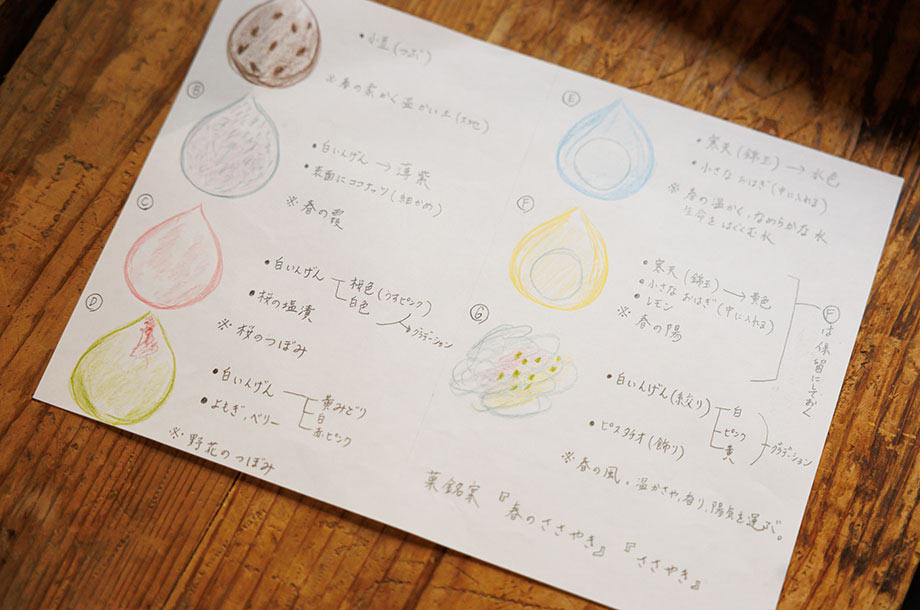 ・小豆(つぶ)
※春の柔かく温かい土(大地)
Ⓑ
・白いんげん→薄紫
・表面にココナッツ(細かめ)
※春の霞
Ⓒ
・白いんげん 桜色(うすピンク)
白色
グラデーション
・桜の塩漬
※桜のつぼみ
Ⓓ
・白いんげん 黄みどり
白
赤ピンク
・よもぎ、ベリー
※野花のつぼみ
Ⓔ
・寒天(錦玉)→水色
・小さなおはぎ(中に入れる)
※春の温かく、なめらかな水
生命をはぐくむ水
Ⓕ
・寒天(錦玉)→黄色
・小さなおはぎ(中に入れる)
・レモン
※春の陽
Ⓕは保留にしておく
Ⓖ
・白いんげん(絞り) 白
ピンク
黄
グラデーション
・ピスタチオ(飾り)
※春の風。温かさや、香り、陽気を運ぶ。
菓銘案『春のささやき』『ささやき』